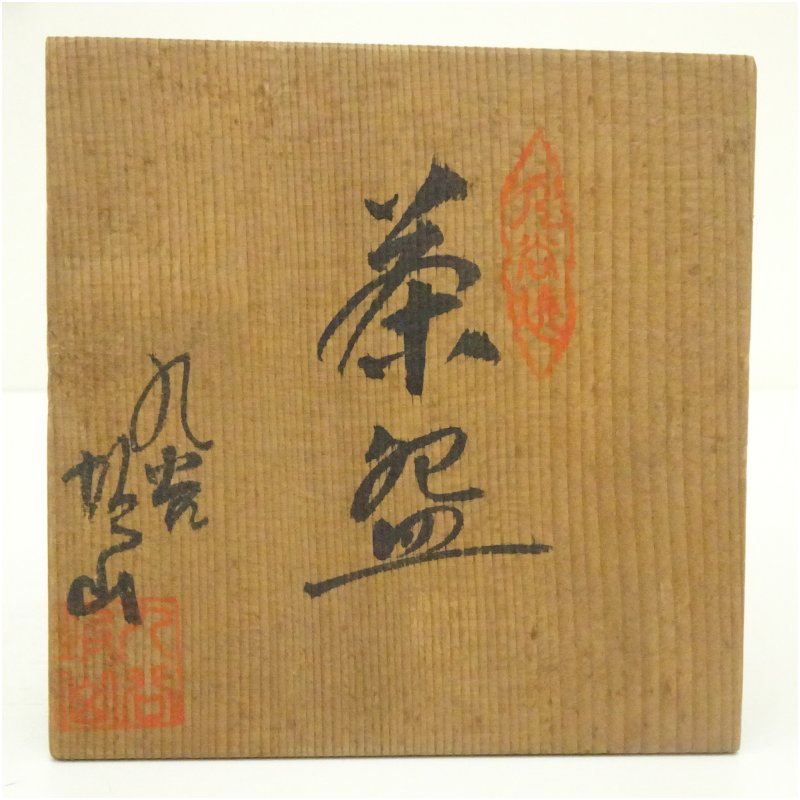 九谷焼
茶盌
九谷
山
九谷